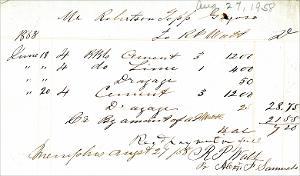 Aug 27, 1858
Mr Robertson Topp
To R P Watt Dr
1858
June 18 4 Bbls Cement 3 1200
" " 4 do Lime 1 400
" " Drayage 50
" 20 4 Cement 3 1200
Drayage 2 28.75
Cr By amount of a/c 21 55
Bal 7 20
Recd payment in full
Memphis Augst 27/58 R P Watt
Pr